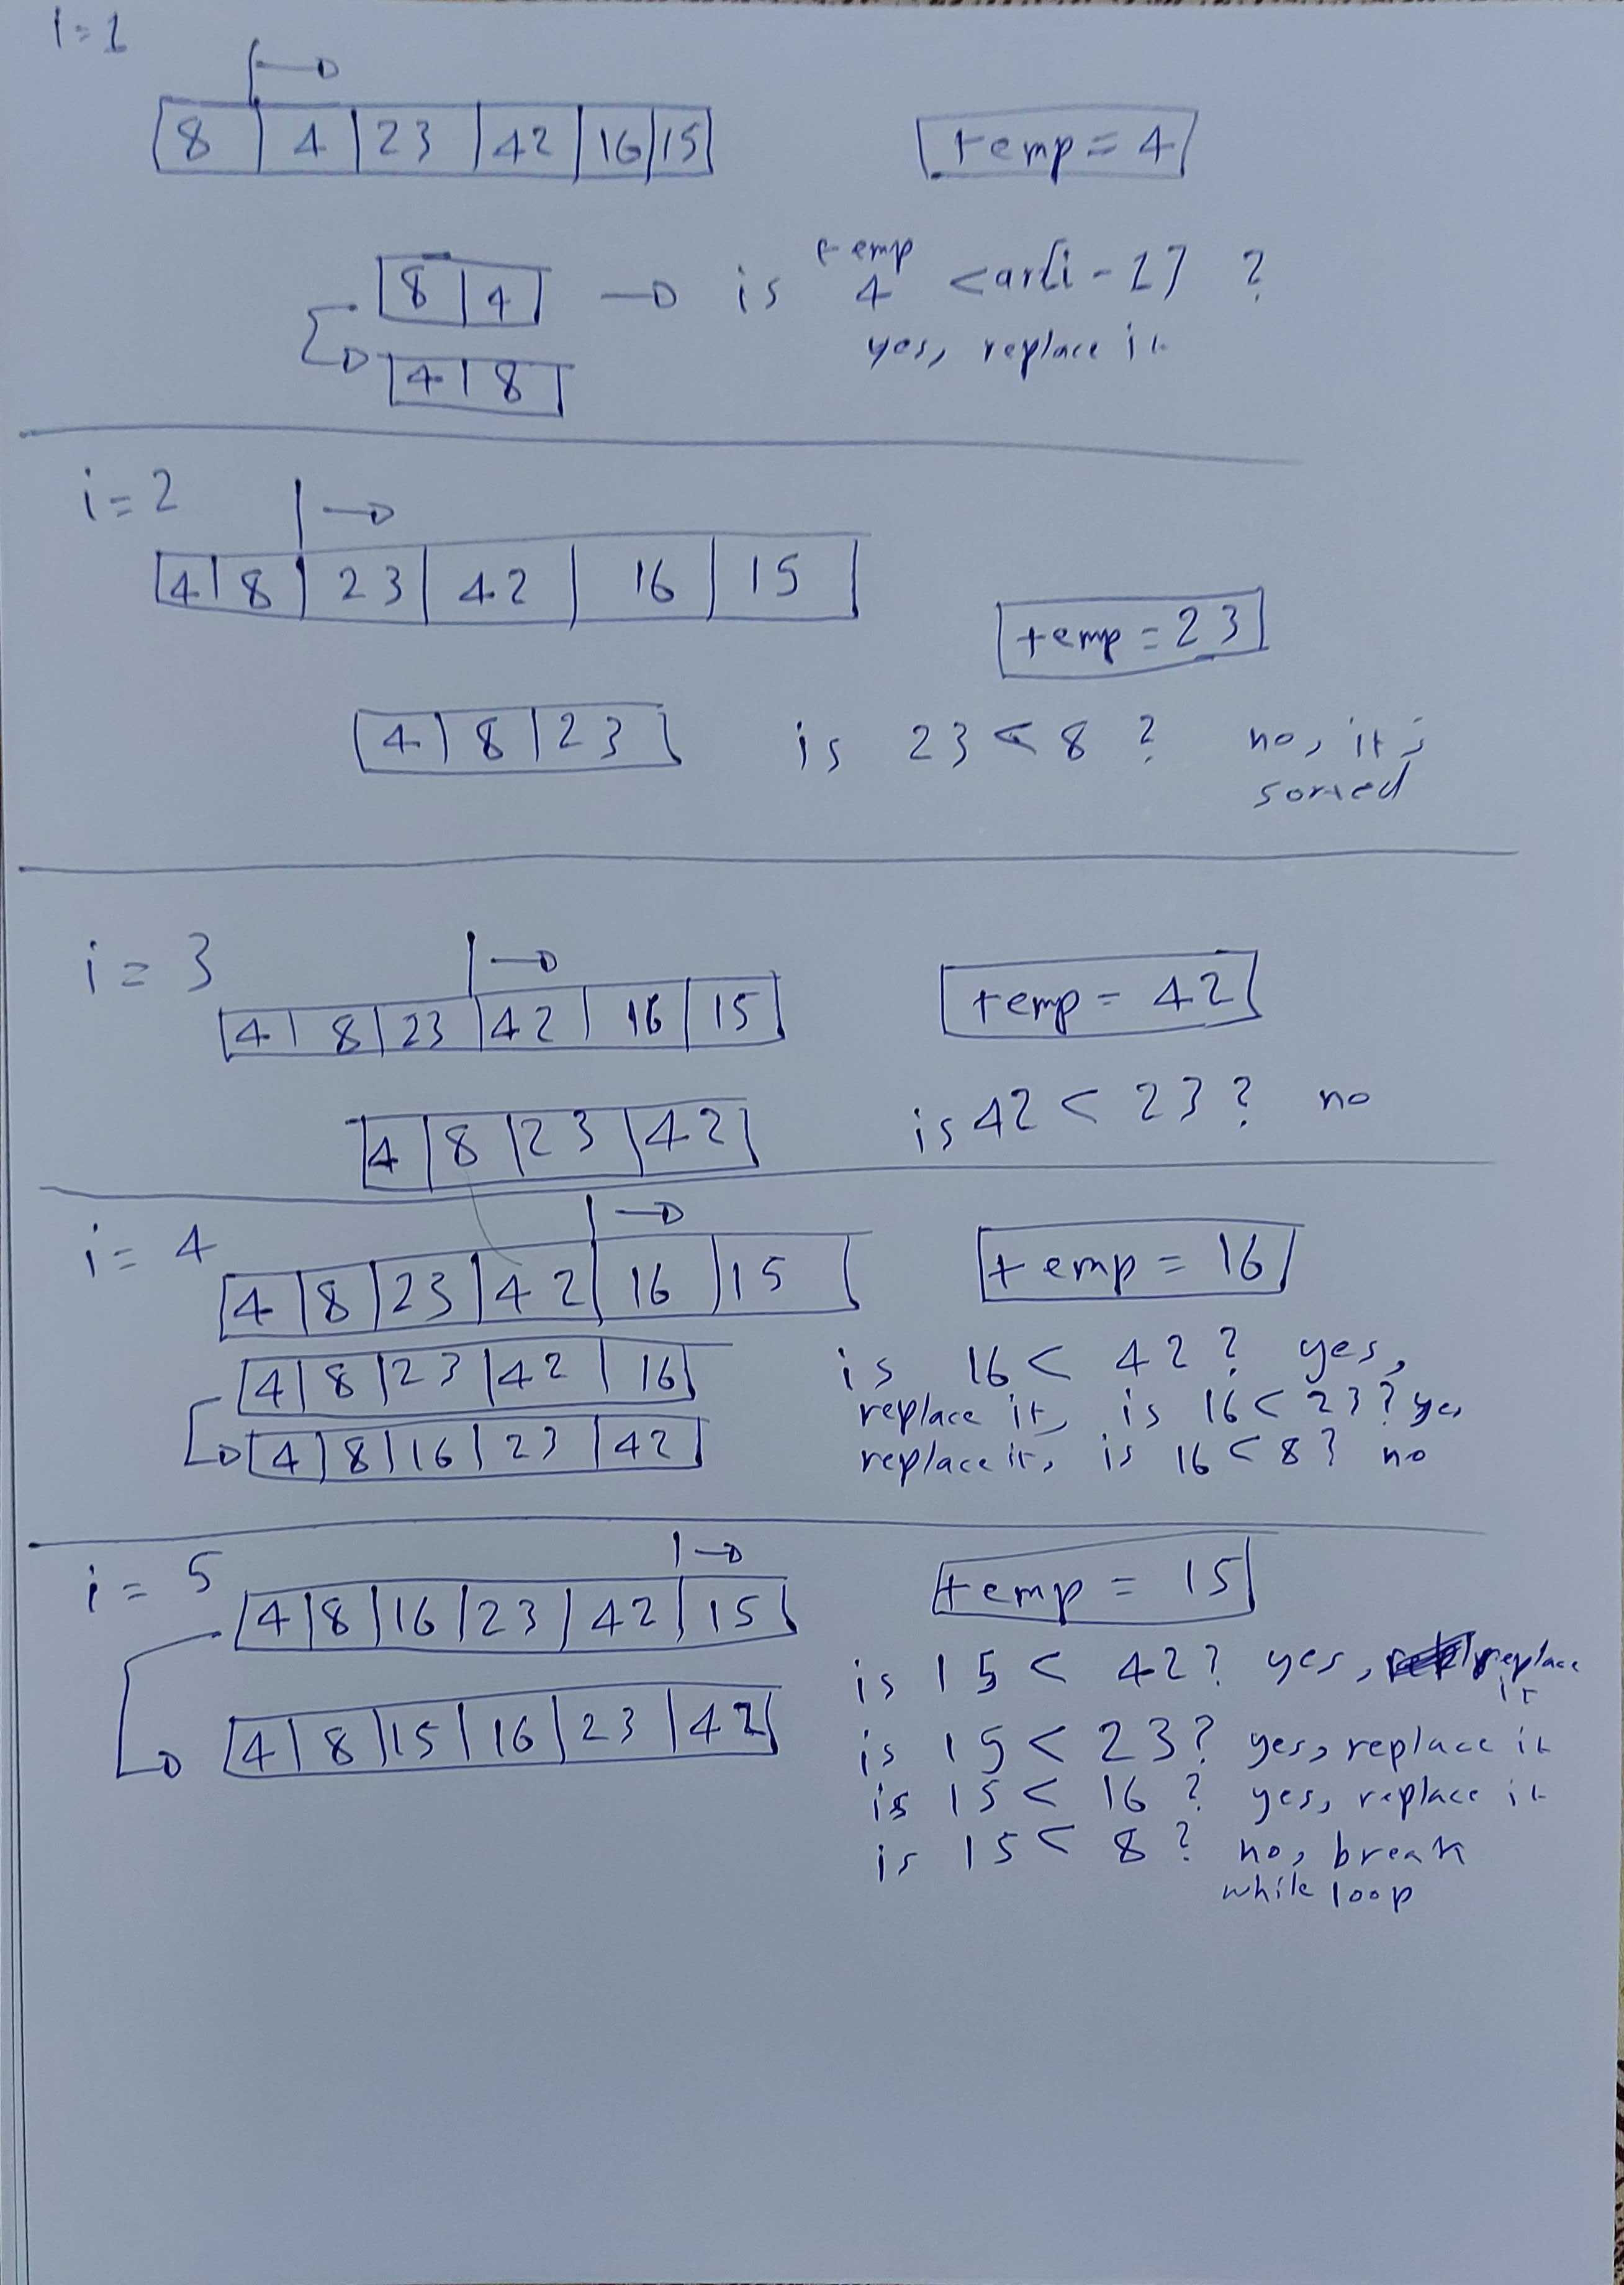 i=1
8 4 23 42 16 15
temp=4
8 4
is temp 4 <ar[i-1] ?
yes, replace it
4 8
i=2
4 8 23 42 16 15
temp=23
4 8 23
is 23 < 8 ? no, it's
sorted
i=3
4 8 23 42 16 15
temp=42
4 8 23 42
is 42 < 23 ? no
i=4
4 8 23 42 16 15
temp=16
4 8 23 42 16
is 16 < 42 ? yes,
replace it, is 16 < 23 ? yes
4 8 16 23 42
replace it, is 16 < 8 ? no
i=5
4 8 16 23 42 15
temp=15
is 15 < 42 ? yes, replace
it
4 8 15 16 23 42
is 15 < 23 ? yes, replace it
is 15 < 16 ? yes, replace it
is 15 < 8 ? no, break
while loop